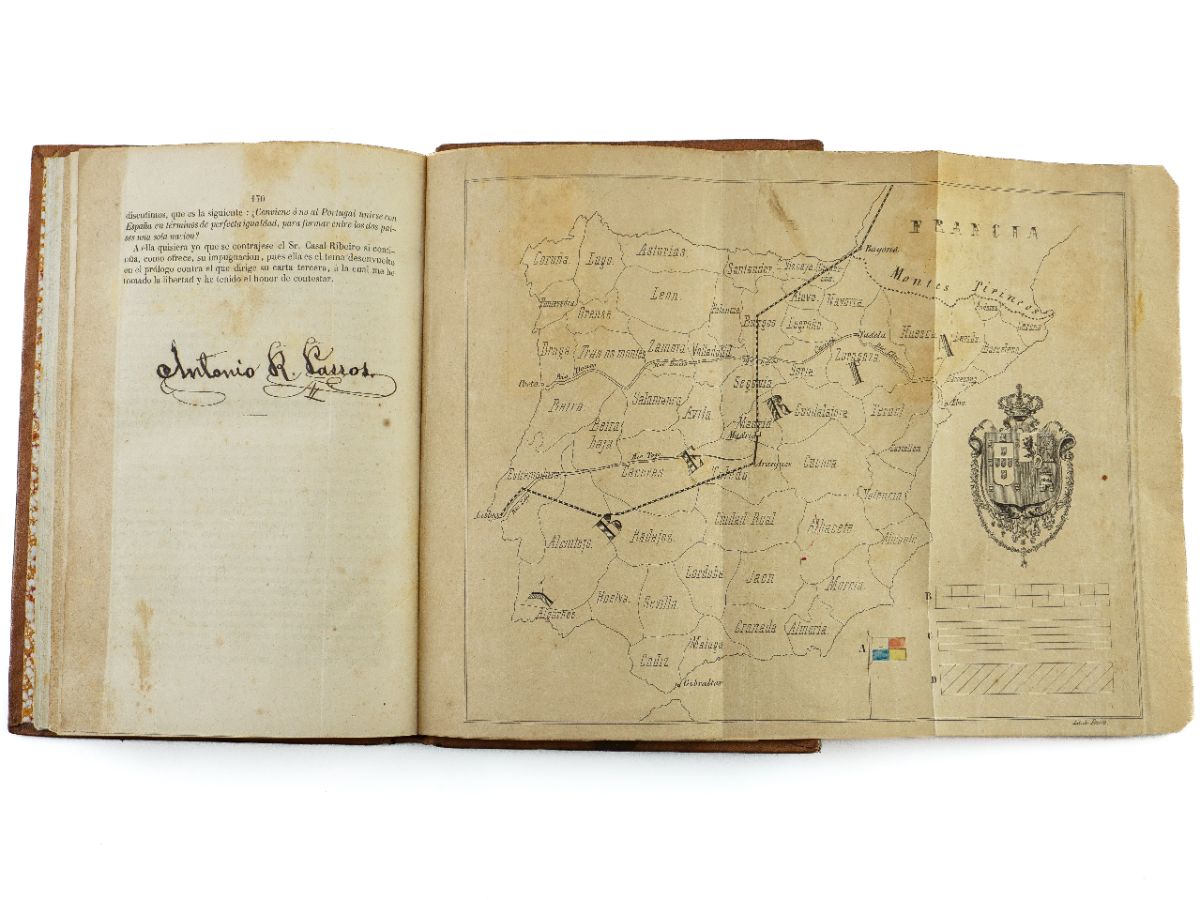 170
discutimos, que es la siguiente : ¿Conviene ó no al Portugal unirse con
España en términos de perfecta igualdad, para formar entre los dos pai-
ses una sola nacion?
A ella quisiera yo que se contrajese el Sr. Casal Ribeiro si conti-
núa, como ofrece, su impugnacion, pues ella es el tema desenvuelto
en el prólogo contra el que dirige su carta tercera, á la cual me he
tomado la libertad y he tenido el honor de contestar.
Antonio R. Passos.
FRANCIA
Bayona
Montes Pirineos
Coruña
Lugo
Asturias
Santander
Vizcaya
Pontevedra
Orense
Leon
Palencia
Burgos
Alava
Navarra
Logroño
Tudela
Huesca
Lerida
Gerona
Barcelona
Braga
Tras os montes
Zamora
Valladolid
Soria
Zaragoza
Porto
Segovia
Beira
Beira
baja
Salamanca
Avila
Madrid
Madrid
Guadalajara
Teruel
Rio Tajo
Estremadura
Caceres
Toledo
Aranjuez
Cuenca
Castellon
Lisboa
Valencia
Alemtejo
Badajoz
Ciudad Real
Albacete
Alicante
Algarbes
Huelva
Sevilla
Cordoba
Jaen
Murcia
Granada
Almeria
Malaga
Cadiz
Gibraltar
I B E R I A
A
B
C
D